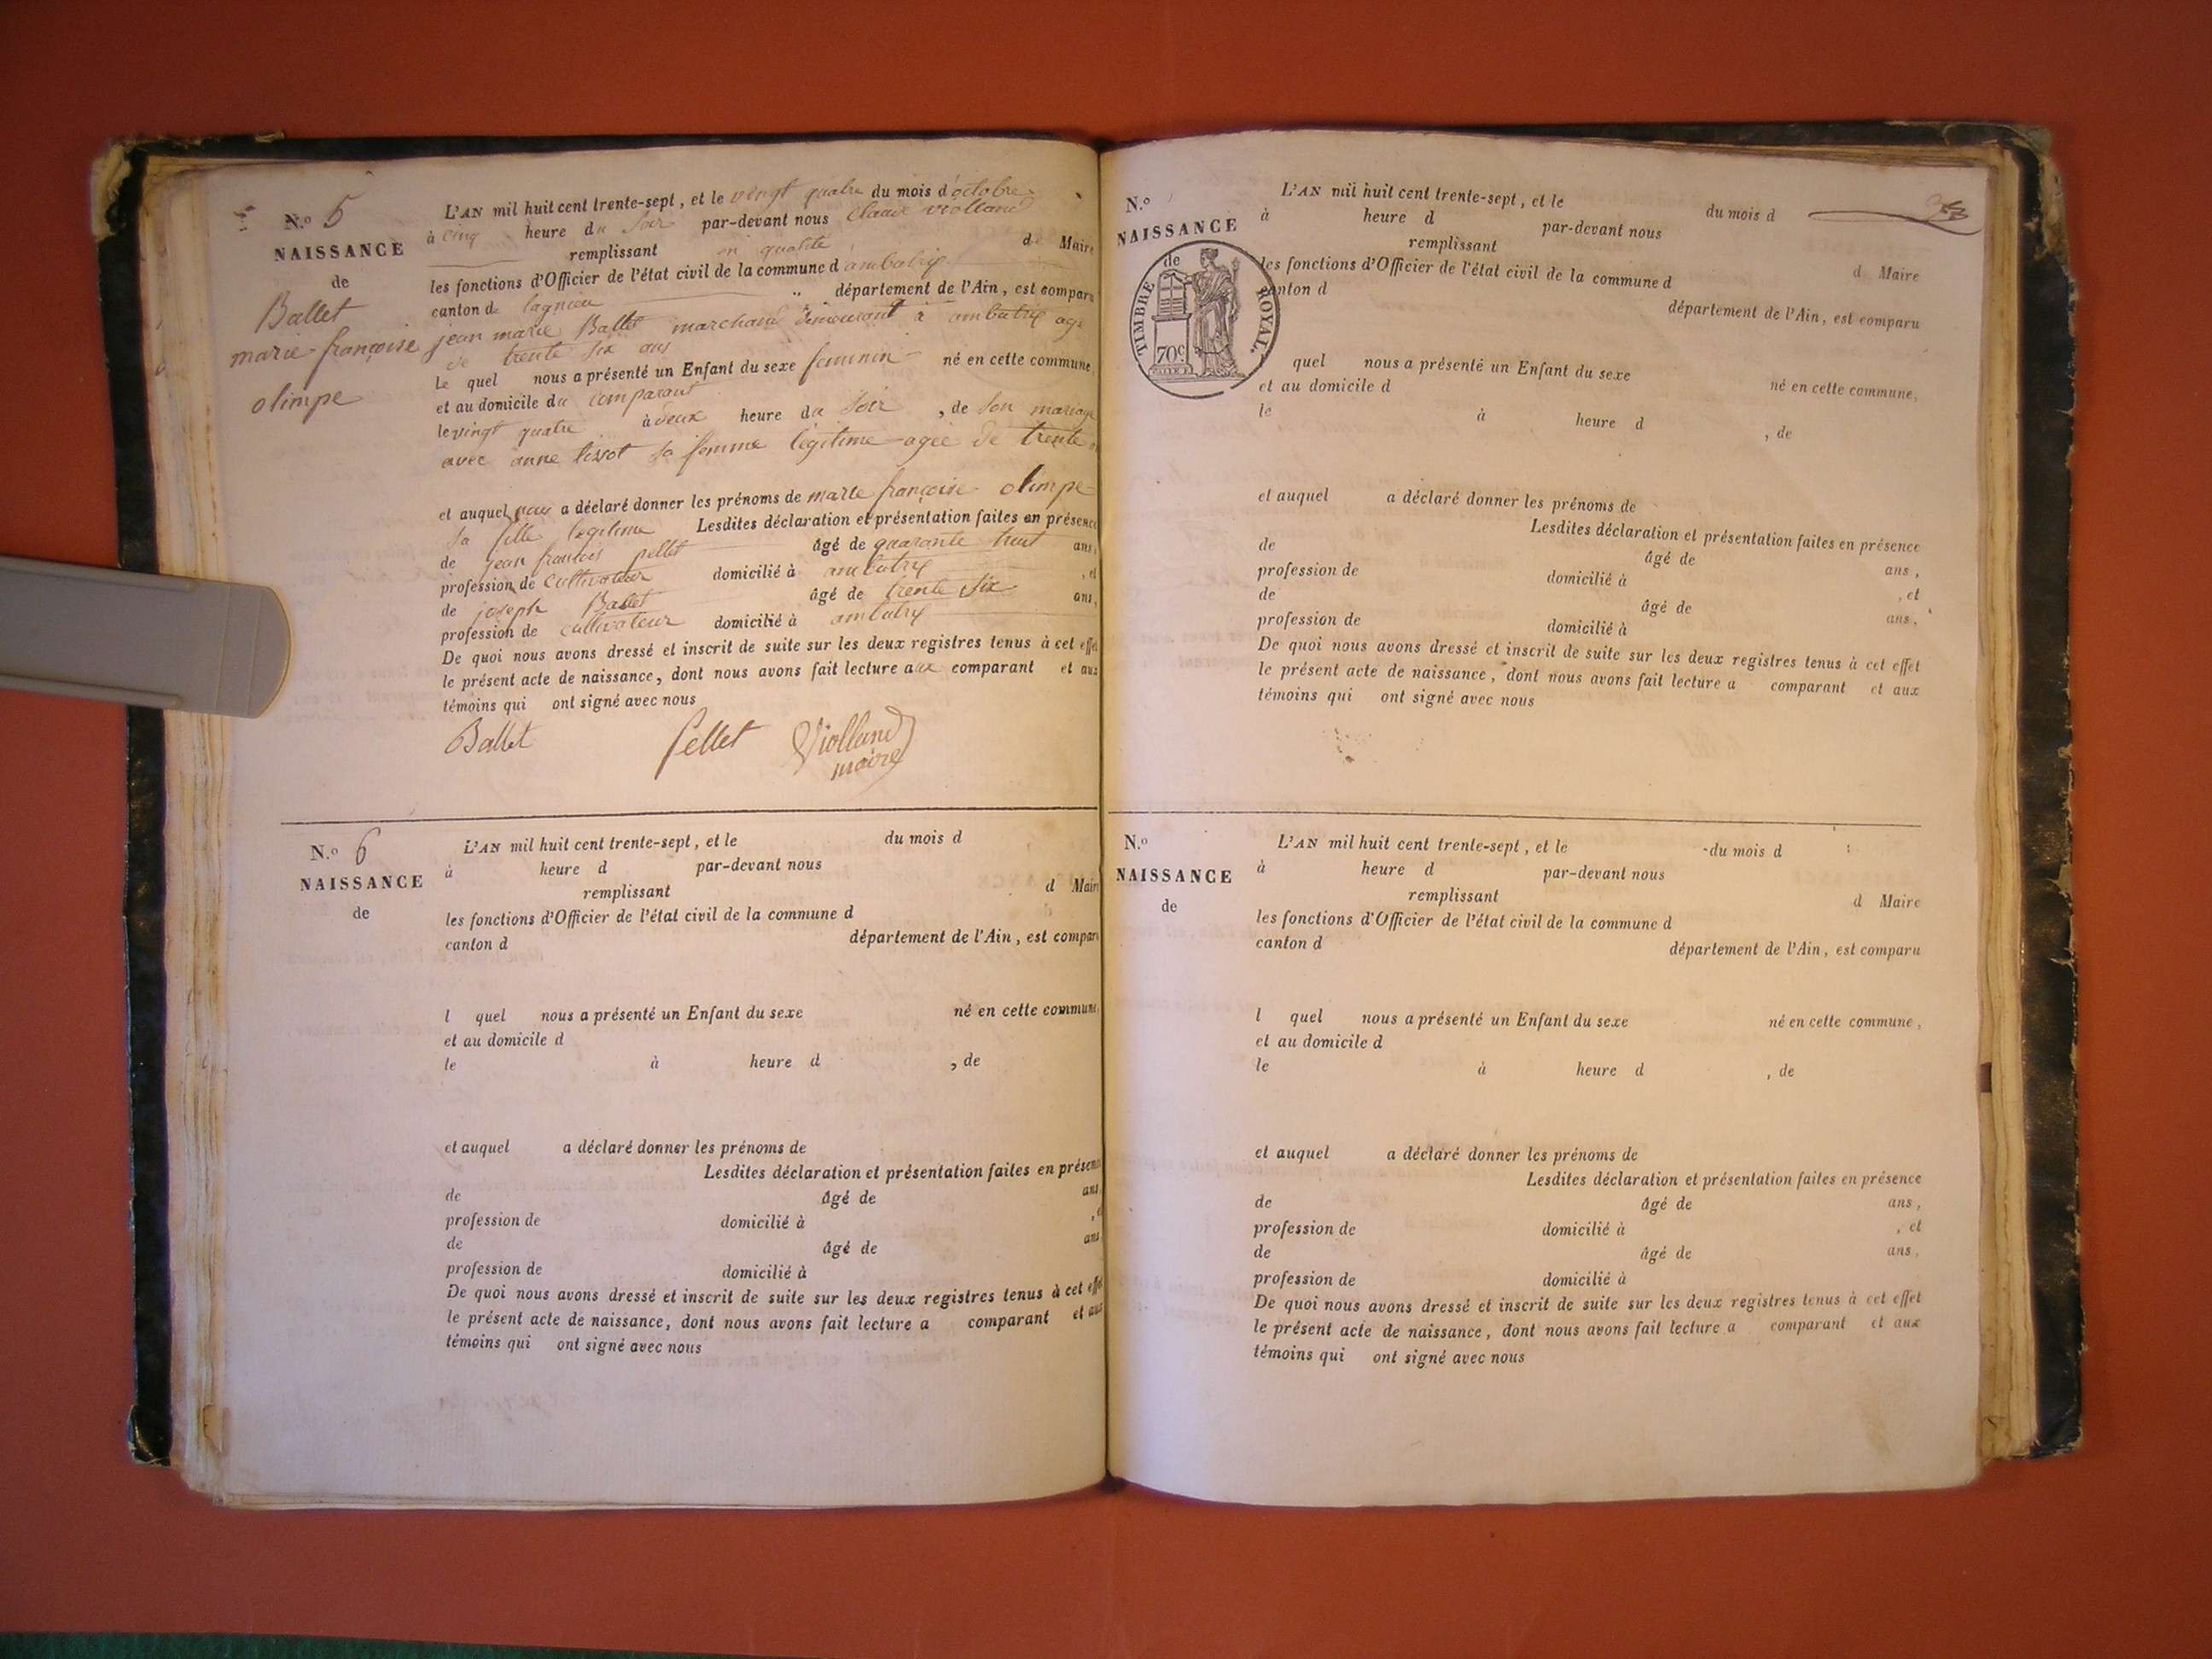 N.o 5
NAISSANCE
de
Ballet
marie-françoise
olimpe
L'AN mil huit cent trente-sept, et le vingt quatre du mois d'octobre
à cinq heure du soir par-devant nous claude violland
remplissant en qualité de Maire
les fonctions d'Officier de l'état civil de la commune d'ambutrix
canton de lagnieu département de l'Ain, est comparu
jean marie Ballet marchand demeurant à ambutrix agé
de trente six ans
Le quel nous a présenté un Enfant du sexe feminin né en cette commune,
et au domicile du comparant
le vingt quatre à deux heure du soir, de son mariage
avec anne tissot sa femme légitime agée de trente
et auquel a déclaré donner les prénoms de marie françoise olimpe
sa fille legitime Lesdites déclaration et présentation faites en présence
de jean françois pellet âgé de quarante huit ans,
profession de cultivateur domicilié à ambutrix, et
de joseph Ballet âgé de trente six ans,
profession de cultivateur domicilié à ambutrix
De quoi nous avons dressé et inscrit de suite sur les deux registres tenus à cet effet
le présent acte de naissance, dont nous avons fait lecture aux comparant et aux
témoins qui ont signé avec nous
Ballet Pellet Violland
maire
N.o 6
NAISSANCE
de
L'AN mil huit cent trente-sept, et le du mois d
à heure d par-devant nous
remplissant d Maire
les fonctions d'Officier de l'état civil de la commune d
canton d département de l'Ain, est comparu
l quel nous a présenté un Enfant du sexe né en cette commune,
et au domicile d
le à heure d , de
et auquel a déclaré donner les prénoms de
Lesdites déclaration et présentation faites en présence
de âgé de ans,
profession de domicilié à , et
de âgé de ans,
profession de domicilié à
De quoi nous avons dressé et inscrit de suite sur les deux registres tenus à cet effet
le présent acte de naissance, dont nous avons fait lecture a comparant et aux
témoins qui ont signé avec nous
N.o
NAISSANCE
de
TIMBRE ROYAL.
70c
L'AN mil huit cent trente-sept, et le du mois d
à heure d par-devant nous
remplissant d Maire
les fonctions d'Officier de l'état civil de la commune d
canton d département de l'Ain, est comparu
quel nous a présenté un Enfant du sexe né en cette commune,
et au domicile d
le à heure d , de
et auquel a déclaré donner les prénoms de
Lesdites déclaration et présentation faites en présence
de âgé de ans,
profession de domicilié à , et
de âgé de ans,
profession de domicilié à
De quoi nous avons dressé et inscrit de suite sur les deux registres tenus à cet effet
le présent acte de naissance, dont nous avons fait lecture a comparant et aux
témoins qui ont signé avec nous
N.o
NAISSANCE
de
L'AN mil huit cent trente-sept, et le du mois d
à heure d par-devant nous
remplissant d Maire
les fonctions d'Officier de l'état civil de la commune d
canton d département de l'Ain, est comparu
l quel nous a présenté un Enfant du sexe né en cette commune,
et au domicile d
le à heure d , de
et auquel a déclaré donner les prénoms de
Lesdites déclaration et présentation faites en présence
de âgé de ans,
profession de domicilié à , et
de âgé de ans,
profession de domicilié à
De quoi nous avons dressé et inscrit de suite sur les deux registres tenus à cet effet
le présent acte de naissance, dont nous avons fait lecture a comparant et aux
témoins qui ont signé avec nous